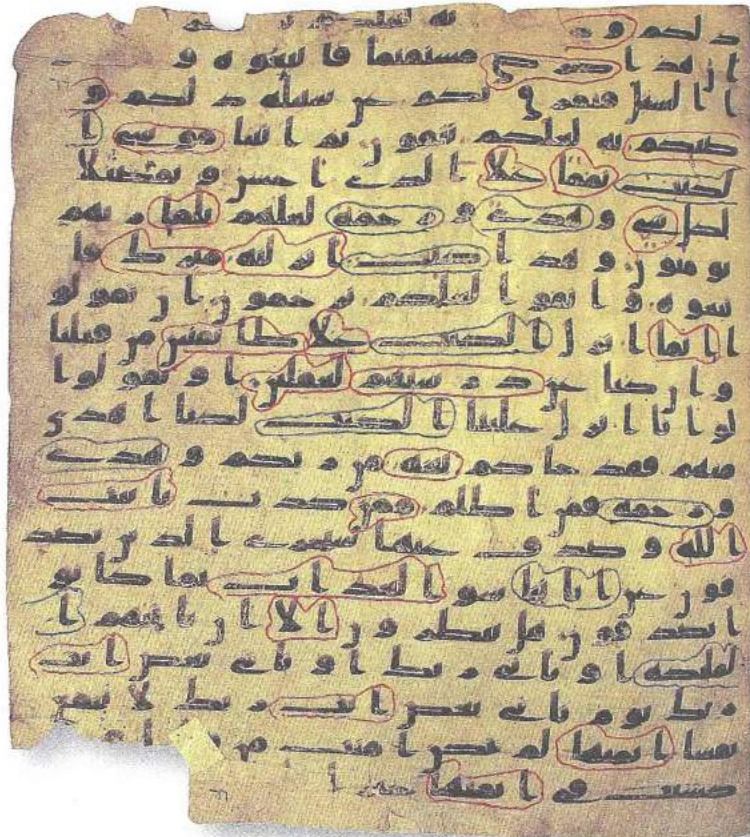 ذلكم و به لعلكم
ان هذا صرطي مستقيما فاتبعوه و
ا السبل فتفرق بكم عن سبيله ذلكم و
صيكم به لعلكم تتقون ثم اتينا موسى ا
لكتب تماما على الذي احسن وتفصيلا
لكل شي وهدى ورحمة لعلهم بلقا ربهم
يومنون وهذا كتب انزلنه مبرك فا
تبعوه واتقوا لعلكم ترحمون ان تقولو
ا انما انزل الكتب على طائفتين من قبلنا
وان كنا عن درستهم لغفلين او تقولوا
لو انا انزل علينا الكتب لكنا اهدى
منهم فقد جاكم بينة من ربكم وهدى
ورحمة فمن اظلم ممن كذب بايت
الله وصدف عنها سنجزي الذين يصد
فون عن ايتنا سو العذاب بما كانو
ا يصدفون هل ينظرون الا ان تاتيهم ا
لملئكة او ياتي ربك او ياتي بعض ايت
ربك يوم ياتي بعض ايت ربك لا ينفع
نفسا ايمنها لم تكن امنت من قبل ا
كسبت في ايمنها خيرا